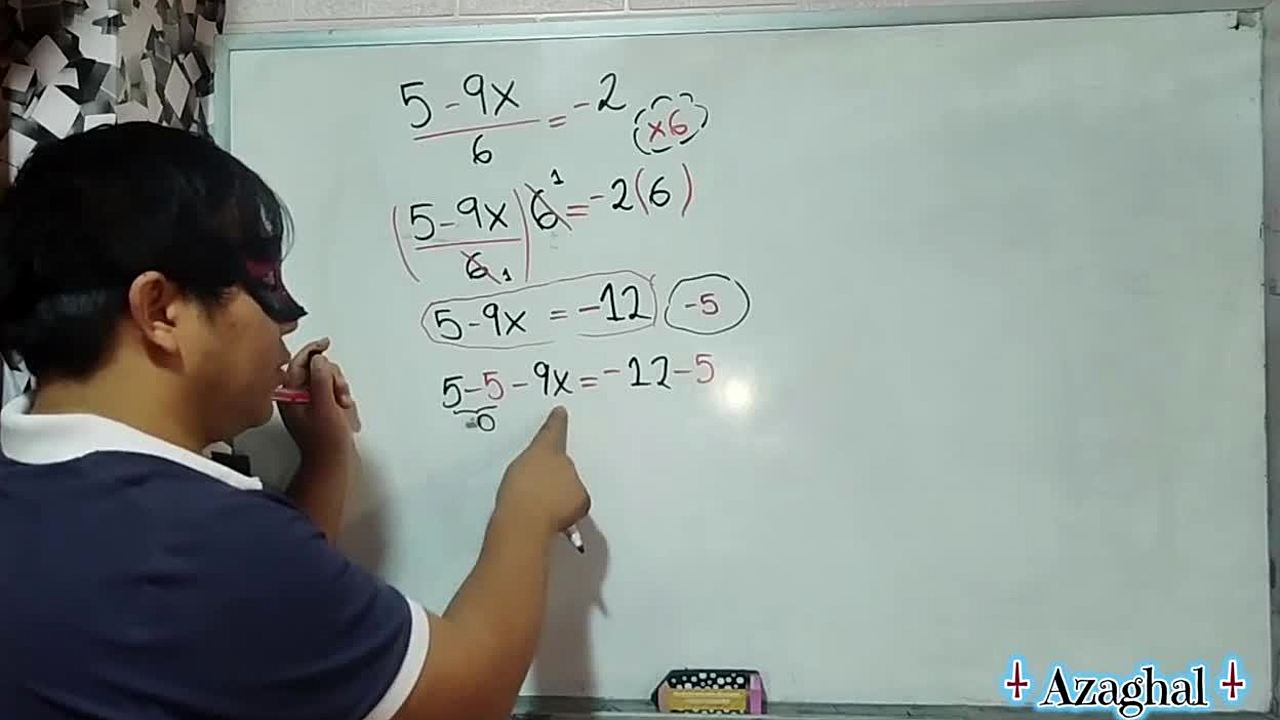 5-9x/6 = -2 ×6
(5-9x/6)6 1 = -2(6)
1
5-9x = -12 -5
5-5-9x = -12-5
0
Azaghal